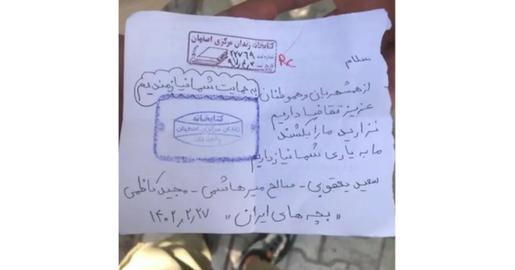 کتابخانه زندان مرکزی اصفهان
شماره ثبت ۲۲۷۶۹
Rc
سلام
از همشهریان و هموطنان به حمایت شما نیازمندیم
عزیز تقاضا داریم
نزارید ما را بکشند
ما به یاری شما نیاز داریم
کتابخانه
زندان مرکزی اصفهان
سعید یعقوبی - صالح میرهاشمی - مجید کاظمی
«بچه های ایران» ۱۴۰۲٫۲٫۲۷